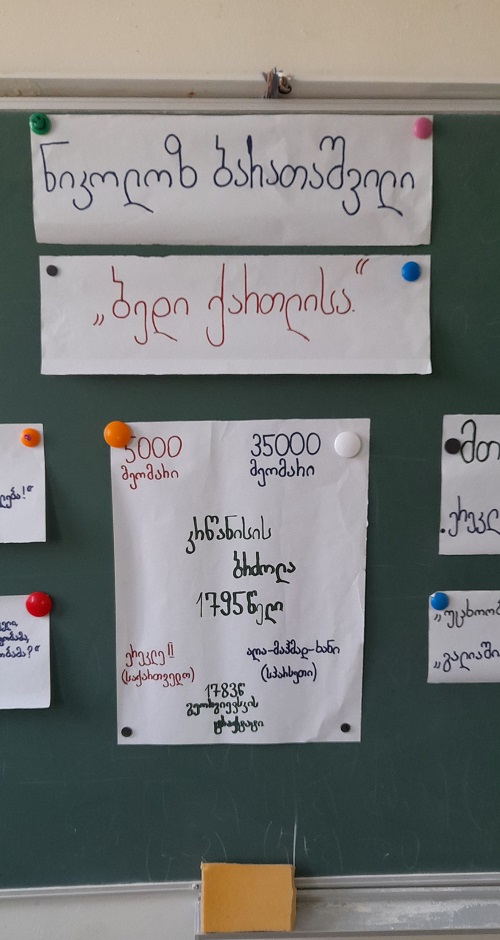 ნიკოლოზ ბარათაშვილი
„ბედი ქართლისა.“
5000
მეომარი
35000
მეომარი
კრწანისის
ბრძოლა
1795 წელი
ერეკლე II
(საქართველო)
აღა-მაჰმად-ხანი
(სპარსეთი)
1783წ
გეორგიევსკის
ტრაქტატი
მთ
ერეკლ
„უცხოობ
„გალიაში